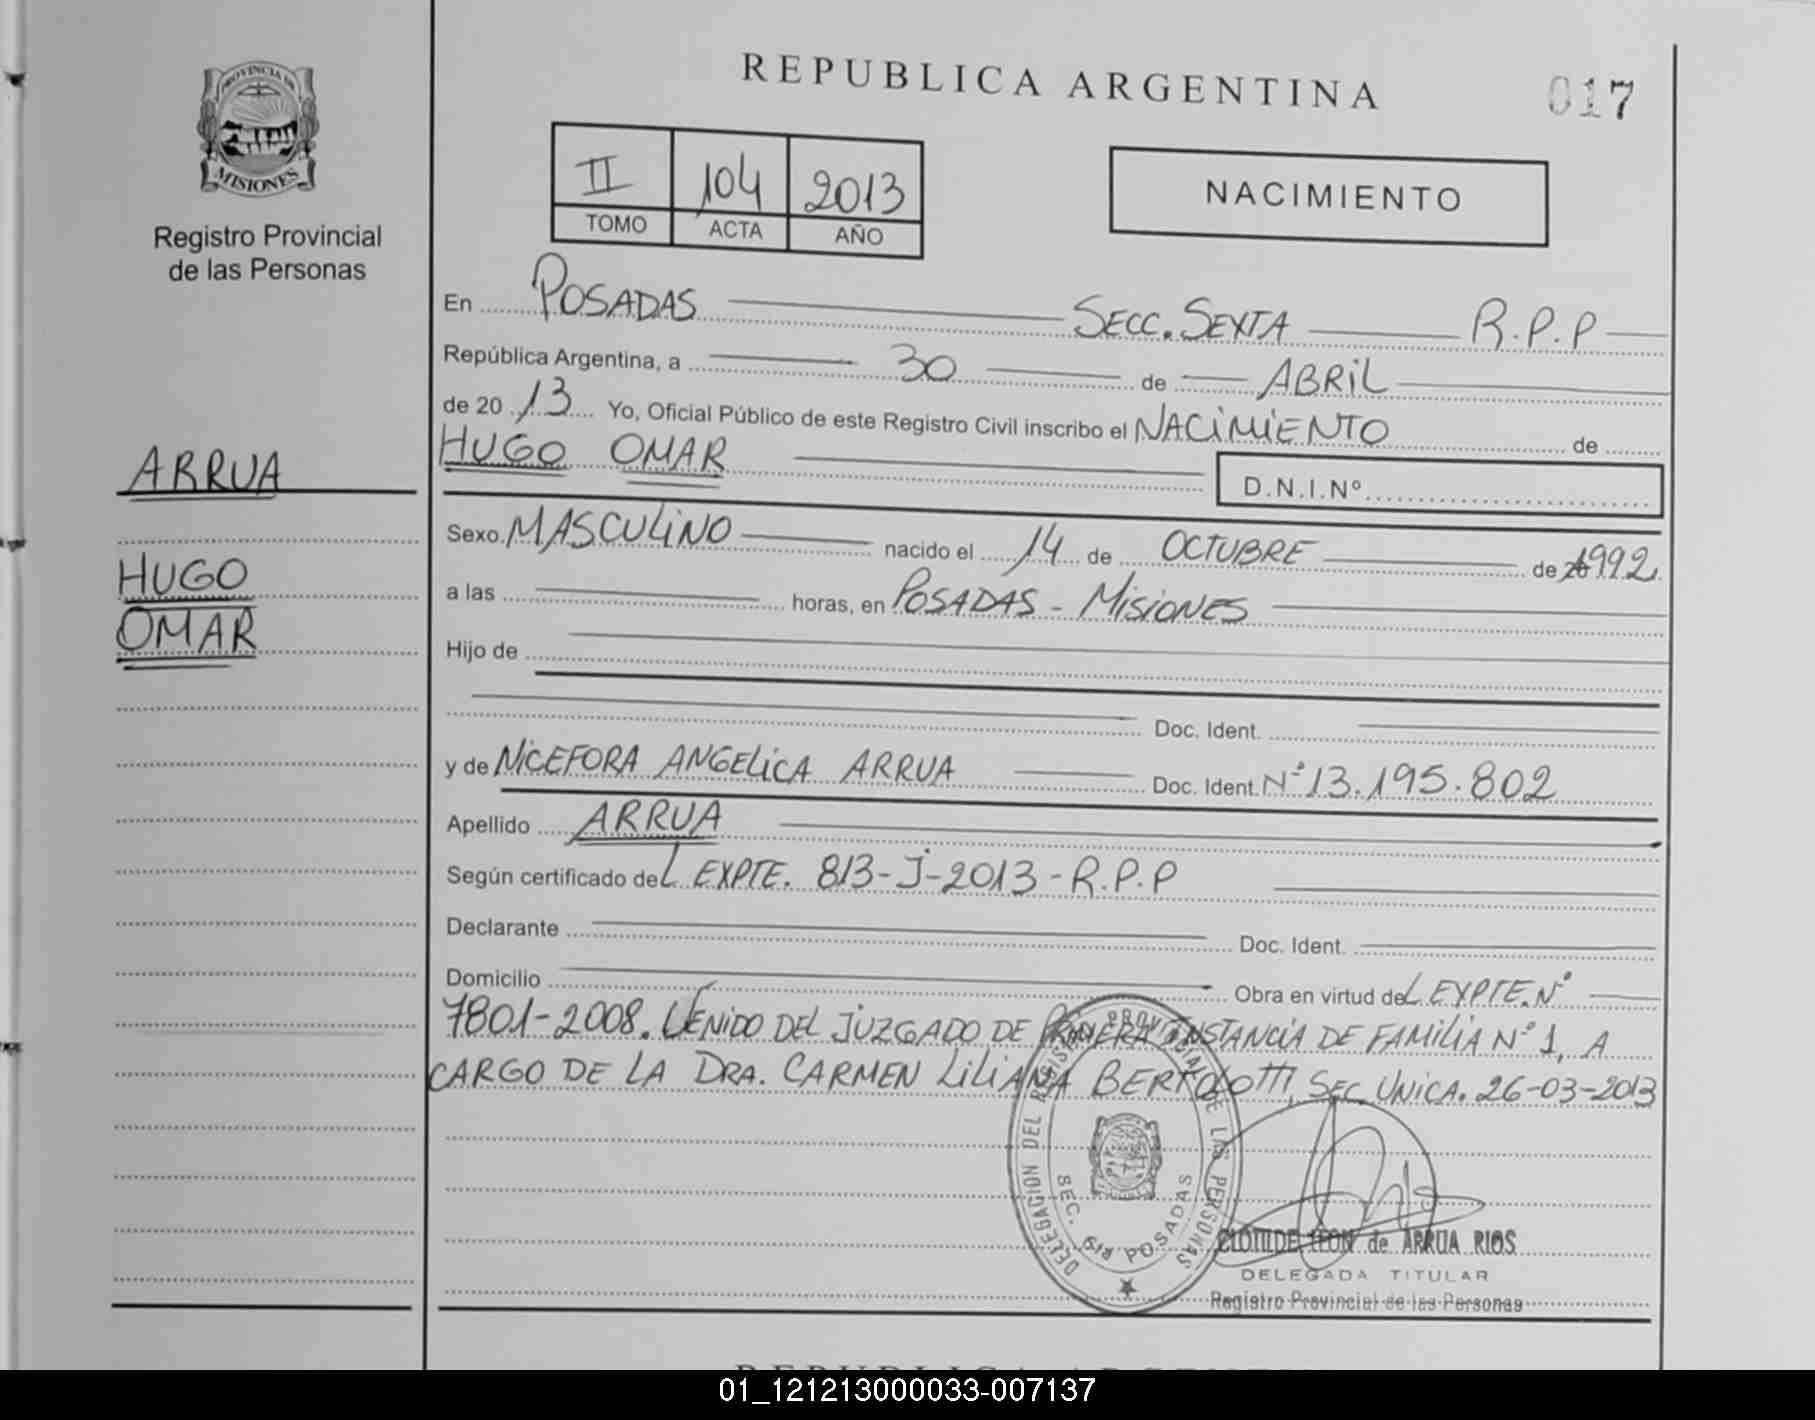 REPUBLICA ARGENTINA
017
PROVINCIA DE
MISIONES
Registro Provincial
de las Personas
II 104 2013
TOMO ACTA AÑO
NACIMIENTO
En POSADAS SECC. SEXTA R.P.P
República Argentina, a 30 de ABRIL
de 20 13 Yo, Oficial Público de este Registro Civil inscribo el NACIMIENTO de
HUGO OMAR
D.N.I.Nº
ARRUA
HUGO
OMAR
Sexo MASCULINO nacido el 14 de OCTUBRE de 1992
a las horas, en POSADAS - MISIONES
Hijo de
Doc. Ident.
y de NICEFORA ANGELICA ARRUA Doc. Ident. Nº 13.195.802
Apellido ARRUA
Según certificado del EXPTE. 813-J-2013-R.P.P
Declarante Doc. Ident.
Domicilio Obra en virtud del EXPTE. Nº
7801-2008. VENIDO DEL JUZGADO DE PRIMERA INSTANCIA DE FAMILIA Nº 1, A
CARGO DE LA DRA. CARMEN LILIANA BERTOLOTTI, SEC. UNICA. 26-03-2013
DELEGACION DEL REGISTRO PROVINCIAL DE LAS PERSONAS
SEC. 6ta POSADAS
CLOTILDE LEON de ARRUA RIOS
DELEGADA TITULAR
Registro Provincial de las Personas
01_121213000033-007137